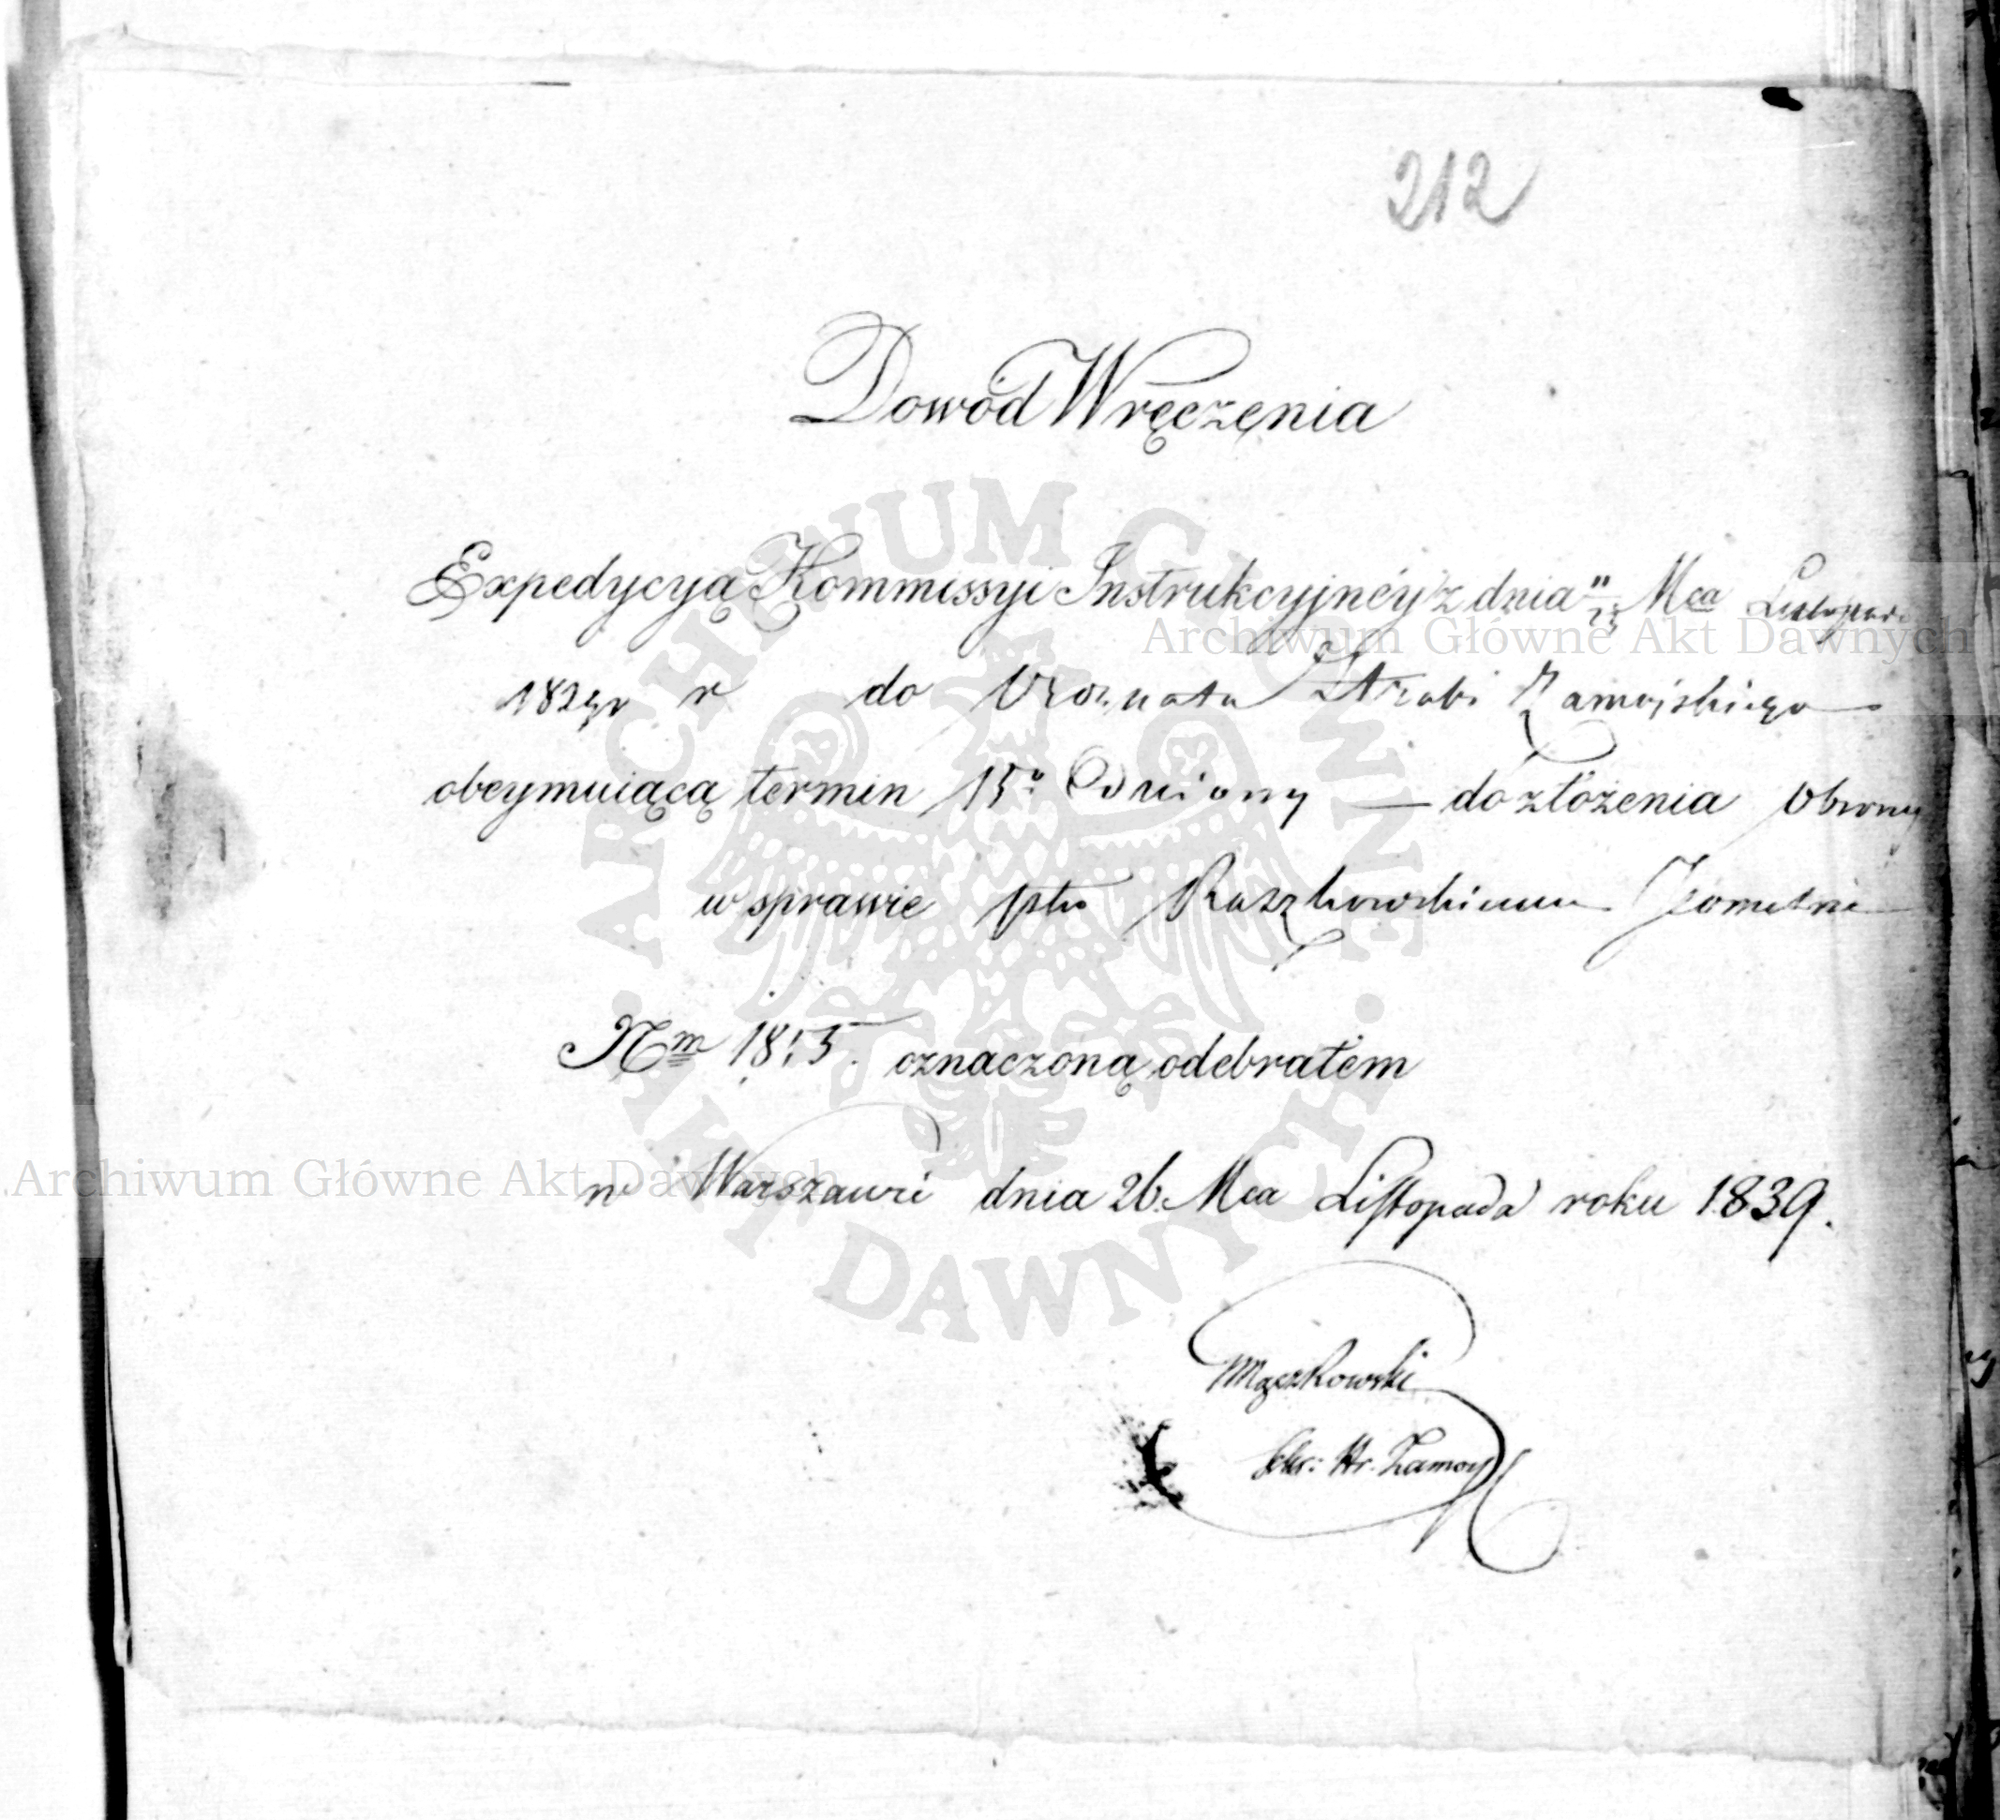 212
Dowód Wręczenia
Expedycyą Kommissyi Instrukcyjnéy z dnia 11/23 Mca Listopad.
r do Hrabi Zamojskiego
obeymuiącą termin 15o Odniony — do złożenia Obrony
w sprawie pko Raszkowskiemu Jeometrze
Nrm 1815. oznaczoną odebrałem
w Warszawie dnia 26. Mca Listopada roku 1839.
Mączkowski
Sekr: Hr. Zamoy
ARCHIWUM GŁÓWNE AKT DAWNYCH
Archiwum Główne Akt Dawnych
Archiwum Główne Akt Dawnych